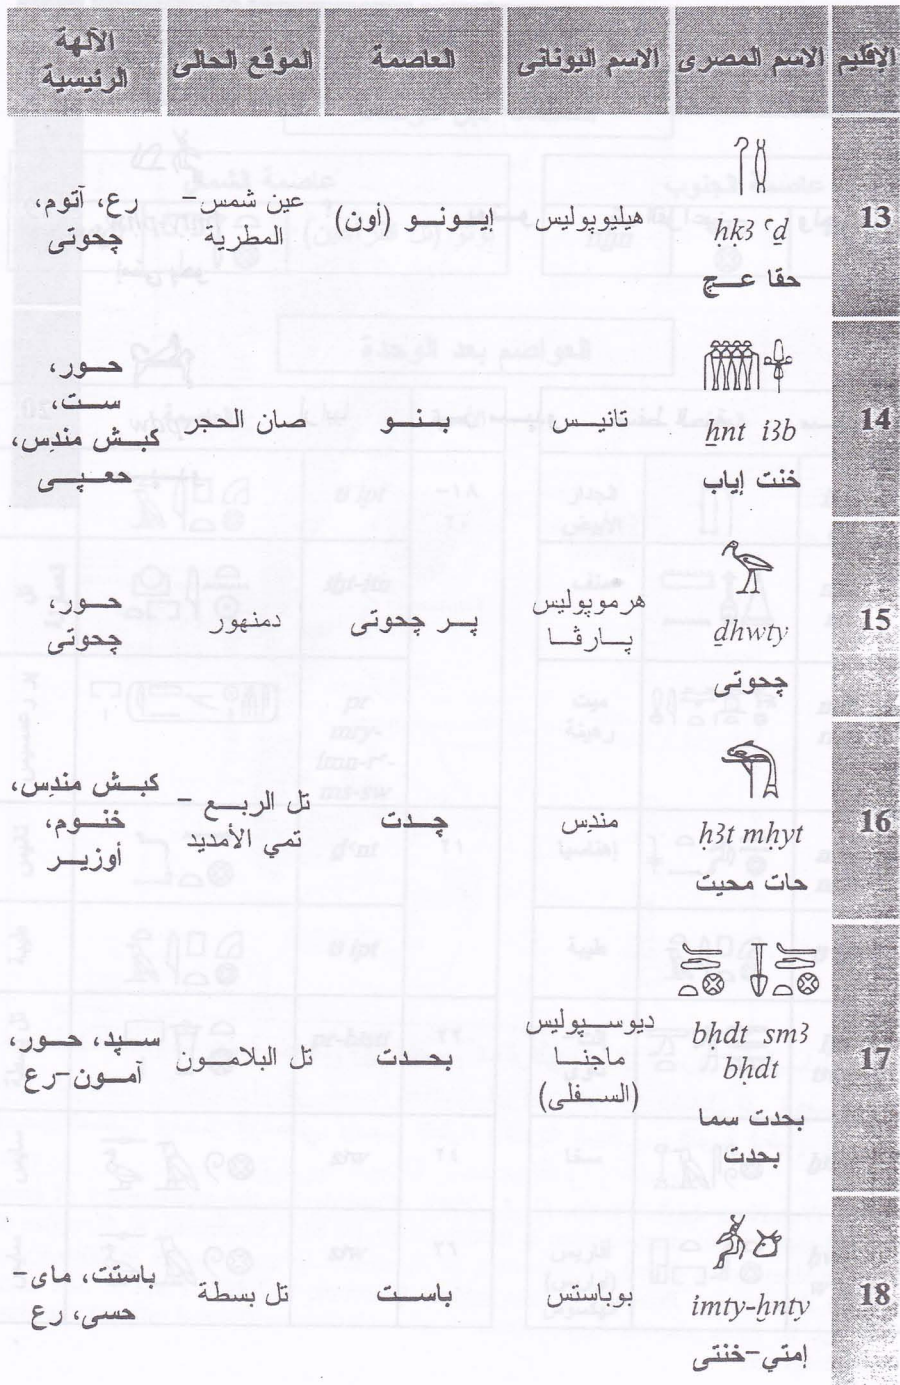 الإقليم الاسم المصرى الاسم اليونانى العاصمة الموقع الحالى الآلهة الرئيسية
13
ḥḳȝ ꜥḏ
حقا عـــچ
هيليوپوليس
إيـونـــو (أون)
عين شمس–
المطرية
رع، آتوم،
چحوتى
14
ḫnt iȝb
خنت إياب
تانيــس
بـنــو
صان الحجر
حـــور،
ســت،
كبـش مندِس،
حعـپــى
15
ḏhwty
چحوتى
هرموپوليس
پــارڤــا
پــر چحوتى
دمنهور
حـــور،
چحوتى
16
ḥȝt mḥyt
حات محيت
مندِس
چـدت
تل الربــع –
تمي الأمديد
كبـش مندِس،
خنــوم،
أوزيــر
17
bḥdt smȝ
bḥdt
بحدت سما
بحدت
ديوسـپوليس
ماجنــا
(الســفلى)
بـحـدت
تل البلامــون
ســپد، حــور،
آمــون–رع
18
imty-ḫnty
إمتي–خنتى
بوباستس
باســت
تل بسطة
باستت، ماى–
حسى، رع